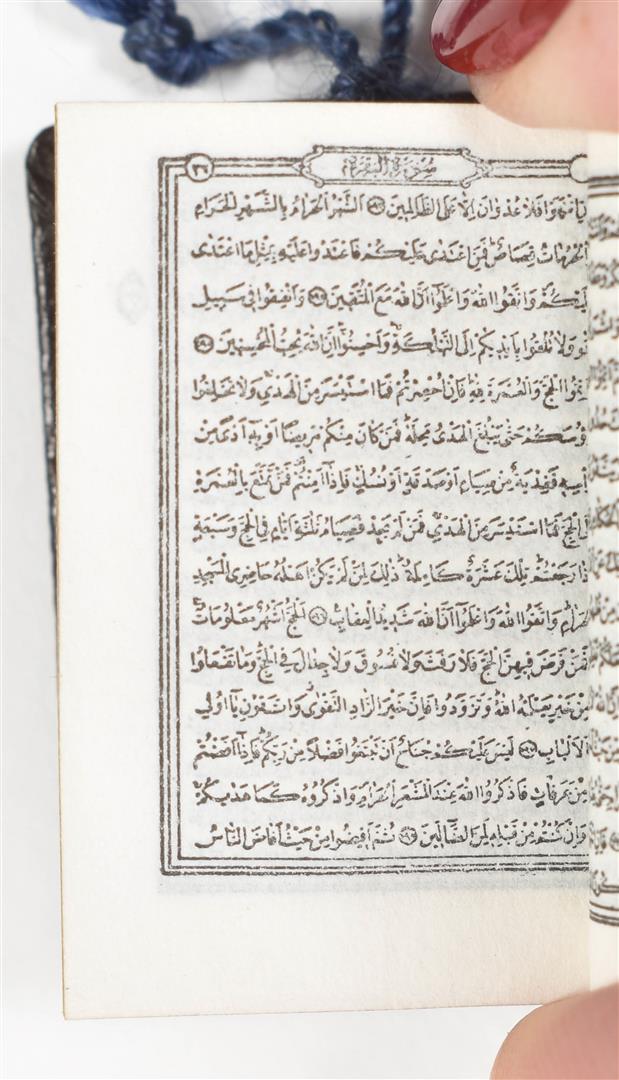 سورة البقرة
٣٧
يَا انْتَهَوْا فَلَا عُدْوَانَ اِلَّا عَلَى الظَّالِمِينَ ١٩٣ اَلشَّهْرُ الْحَرَامُ بِالشَّهْرِ الْحَرَامِ
الْحُرُمَاتُ قِصَاصٌ فَمَنِ اعْتَدٰى عَلَيْكُمْ فَاعْتَدُوا عَلَيْهِ بِمِثْلِ مَا اعْتَدٰى
لَيْكُمْ وَاتَّقُوا اللّٰهَ وَاعْلَمُوا اَنَّ اللّٰهَ مَعَ الْمُتَّقِينَ ١٩٤ وَاَنْفِقُوا فِي سَبِيلِ
وَلَا تُلْقُوا بِاَيْدِيكُمْ اِلَى التَّهْلُكَةِ وَاَحْسِنُوا اِنَّ اللّٰهَ يُحِبُّ الْمُحْسِنِينَ ١٩٥
تِمُّوا الْحَجَّ وَالْعُمْرَةَ لِلّٰهِ فَاِنْ اُحْصِرْتُمْ فَمَا اسْتَيْسَرَ مِنَ الْهَدْيِ وَلَا تَحْلِقُوا
ؤُسَكُمْ حَتّٰى يَبْلُغَ الْهَدْيُ مَحِلَّهُ فَمَنْ كَانَ مِنْكُمْ مَرِيضًا اَوْ بِهِ اَذًى مِنْ
أْسِهِ فَفِدْيَةٌ مِنْ صِيَامٍ اَوْ صَدَقَةٍ اَوْ نُسُكٍ فَاِذَا اَمِنْتُمْ فَمَنْ تَمَتَّعَ بِالْعُمْرَةِ
لَى الْحَجِّ فَمَا اسْتَيْسَرَ مِنَ الْهَدْيِ فَمَنْ لَمْ يَجِدْ فَصِيَامُ ثَلٰثَةِ اَيَّامٍ فِي الْحَجِّ وَسَبْعَةٍ
ذَا رَجَعْتُمْ تِلْكَ عَشَرَةٌ كَامِلَةٌ ذٰلِكَ لِمَنْ لَمْ يَكُنْ اَهْلُهُ حَاضِرِي الْمَسْجِدِ
لْحَرَامِ وَاتَّقُوا اللّٰهَ وَاعْلَمُوا اَنَّ اللّٰهَ شَدِيدُ الْعِقَابِ ١٩٦ اَلْحَجُّ اَشْهُرٌ مَعْلُومَاتٌ
فَمَنْ فَرَضَ فِيهِنَّ الْحَجَّ فَلَا رَفَثَ وَلَا فُسُوقَ وَلَا جِدَالَ فِي الْحَجِّ وَمَا تَفْعَلُوا
مِنْ خَيْرٍ يَعْلَمْهُ اللّٰهُ وَتَزَوَّدُوا فَاِنَّ خَيْرَ الزَّادِ التَّقْوٰى وَاتَّقُونِ يَا اُولِي
الْاَلْبَابِ ١٩٧ لَيْسَ عَلَيْكُمْ جُنَاحٌ اَنْ تَبْتَغُوا فَضْلًا مِنْ رَبِّكُمْ فَاِذَا اَفَضْتُمْ
مِنْ عَرَفَاتٍ فَاذْكُرُوا اللّٰهَ عِنْدَ الْمَشْعَرِ الْحَرَامِ وَاذْكُرُوهُ كَمَا هَدٰيكُمْ
وَاِنْ كُنْتُمْ مِنْ قَبْلِهِ لَمِنَ الضَّالِّينَ ١٩٨ ثُمَّ اَفِيضُوا مِنْ حَيْثُ اَفَاضَ النَّاسُ